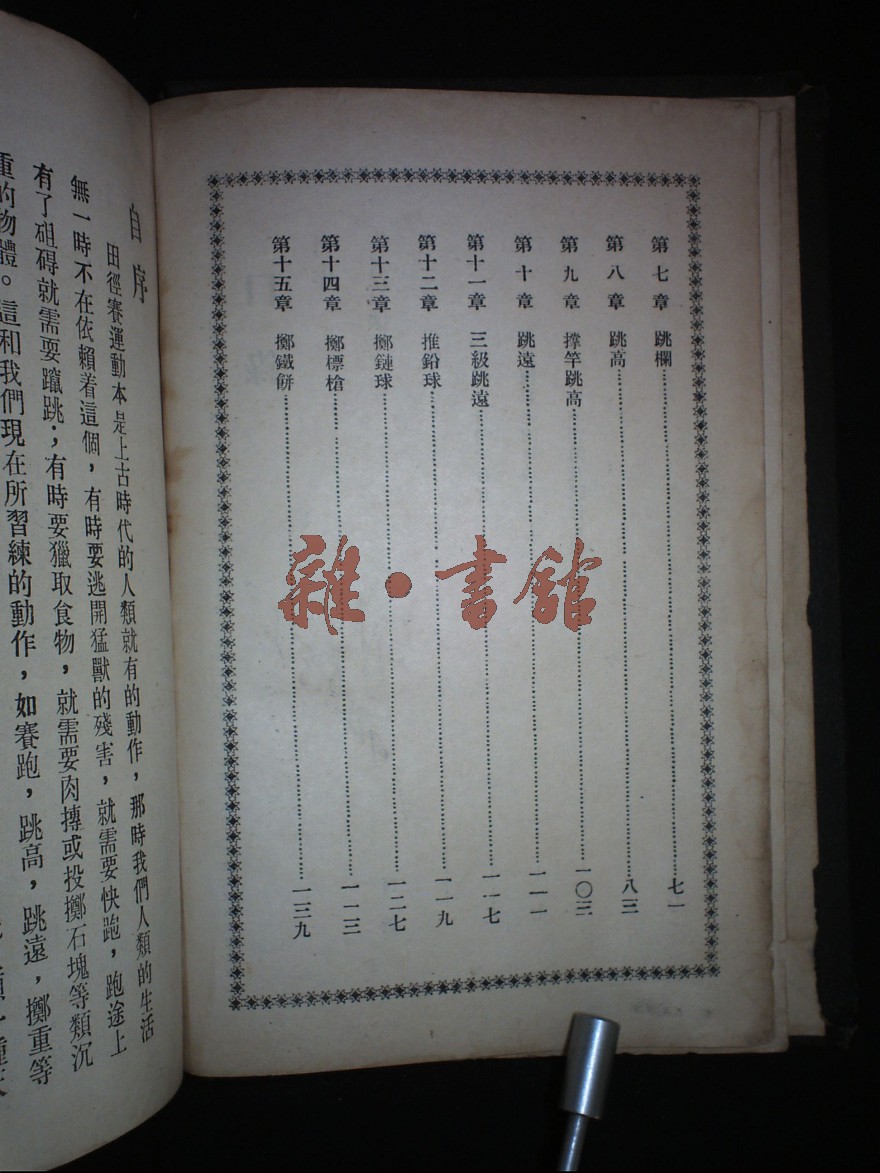 第七章 跳欄……七一
第八章 跳高……八三
第九章 撑竿跳高……一〇三
第十章 跳遠……一一一
第十一章 三級跳遠……一一七
第十二章 推鉛球……一一九
第十三章 擲鏈球……一二七
第十四章 擲標槍……一一三
第十五章 擲鐵餅……一三九
雜·書館
自序
田徑賽運動本是上古時代的人類就有的動作,那時我們人類的生活
無一時不在依賴着這個,有時要逃開猛獸的殘害,就需要快跑,跑途上
有了砠碍就需耍躥跳;有時要獵取食物,就需要肉摶或投擲石塊等類沉
重的物體。這和我們現在所習練的動作,如賽跑,跳高,跳遠,擲重等